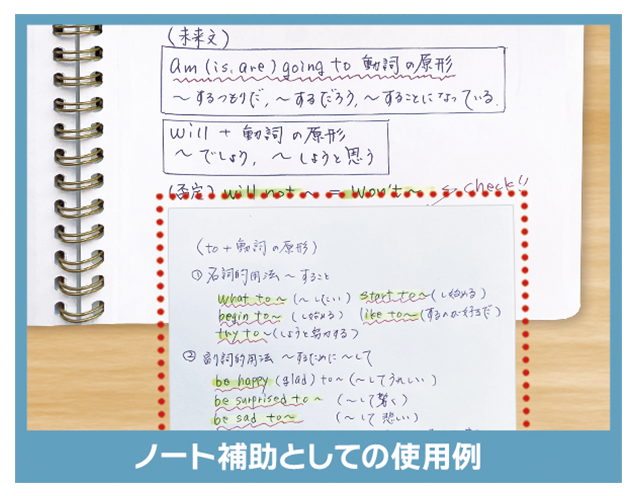 (未来文)
am (is, are) going to 動詞の原形
～するつもりだ, ～するだろう, ～することになっている.
will + 動詞の原形
～でしょう, ～しようと思う
(否定) will not ～ = won't ～ check!!
(to + 動詞の原形)
① 名詞的用法 ～すること
what to～(～したい) start to～(し始める)
begin to～ (し始める) like to～(するのが好きだ)
try to～(しようと努力する)
② 副詞的用法 ～するために ～して
be happy (glad) to～(～してうれしい)
be surprised to ～ (～して驚く)
be sad to～ (～して悲しい)
ノート補助としての使用例